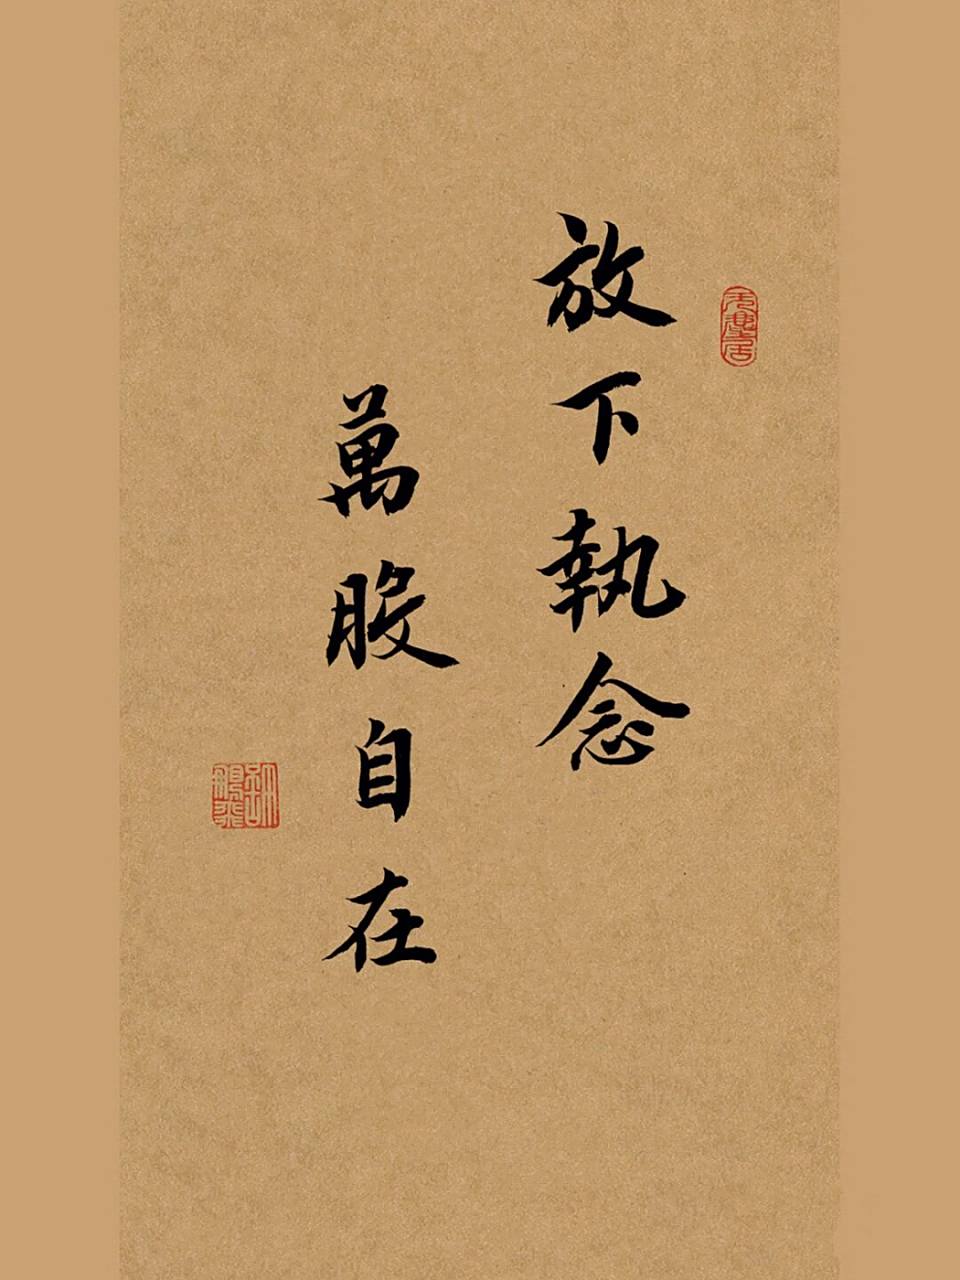 放下執念
萬股自在